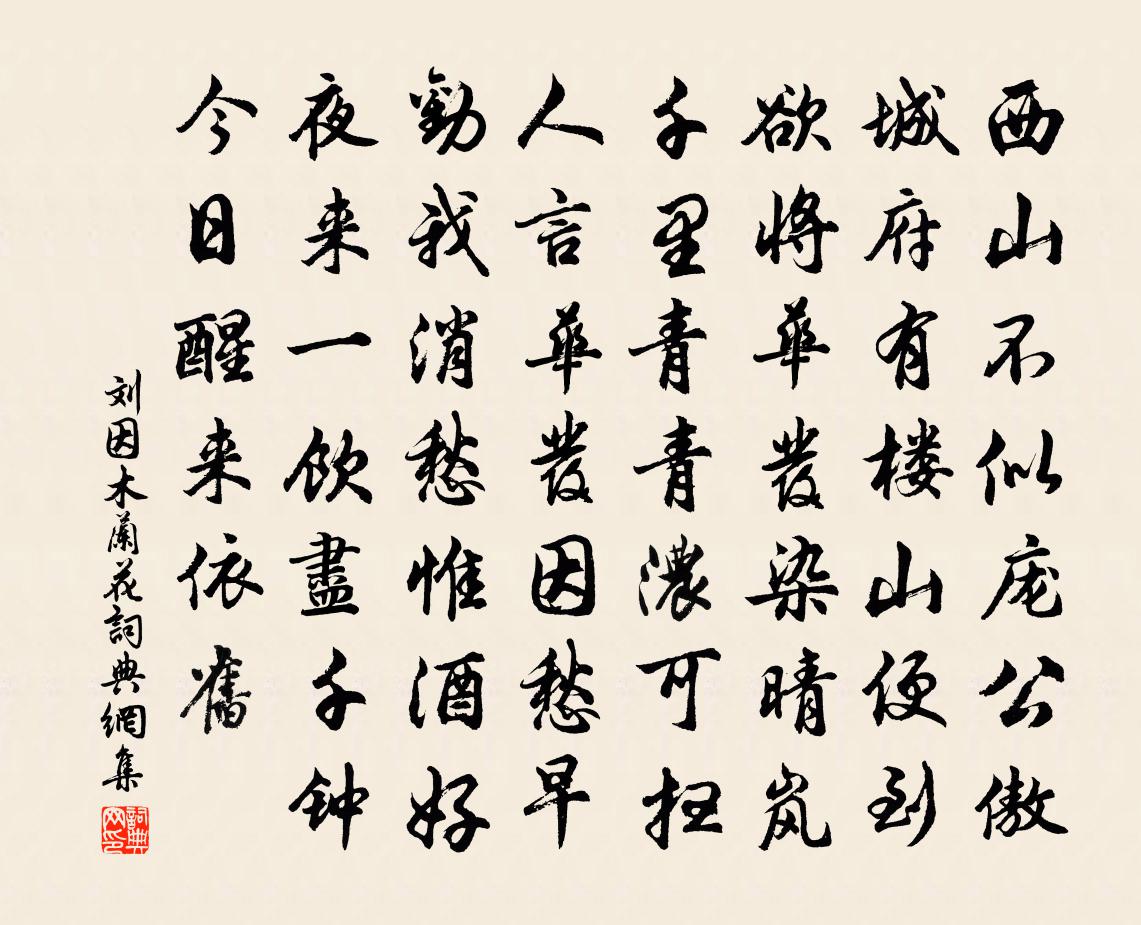 西山不似庞公傲
城府有楼山便到
欲将華發染晴岚
千里青青濃可扫
人言華發因愁早
勸我消愁惟酒好
夜来一飲盡千钟
今日醒来依舊
刘因木蘭花詞典網集
詞典
网印